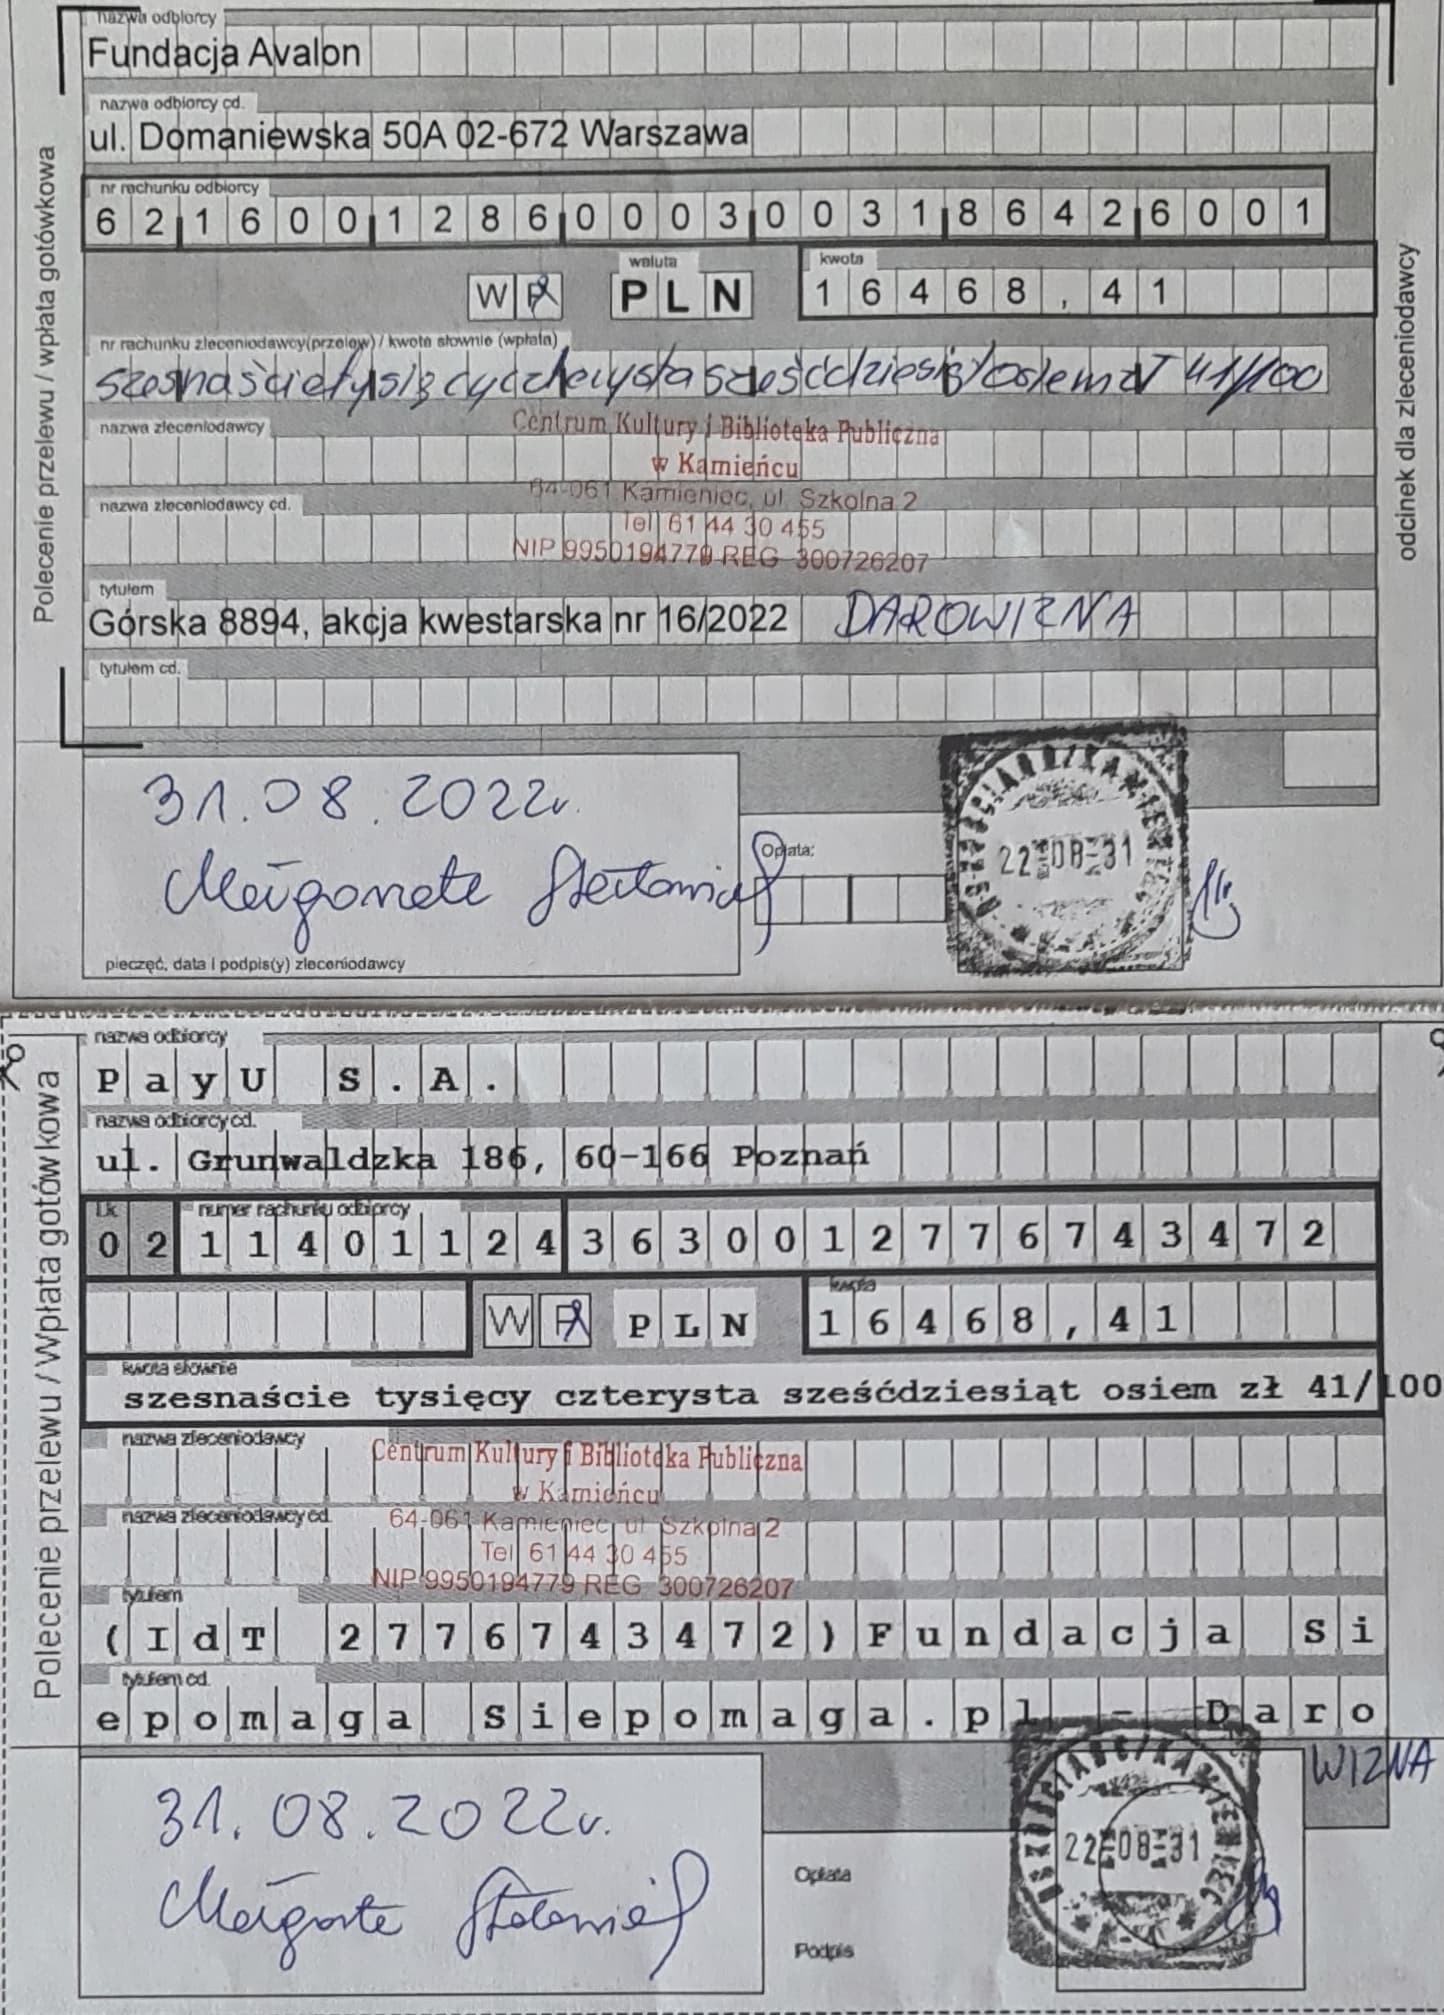 nazwa odbiorcy
Fundacja Avalon
nazwa odbiorcy cd.
ul. Domaniewska 50A 02-672 Warszawa
nr rachunku odbiorcy
62 1600 1286 0003 0031 8642 6001
waluta kwota
W P PLN 16468,41
nr rachunku zleceniodawcy(przelew) / kwota słownie (wpłata)
szesnaście tysięcy czterysta sześćdziesiąt osiem zł 41/100
nazwa zleceniodawcy
Centrum Kultury i Biblioteka Publiczna
w Kamieńcu
64-061 Kamieniec, ul. Szkolna 2
nazwa zleceniodawcy cd.
Tel 61 44 30 455
NIP 9950194779 REG 300726207
tytułem
Górska 8894, akcja kwestarska nr 16/2022 DAROWIZNA
tytułem cd.
31.08.2022r.
Opłata:
22-08-31
pieczęć, data i podpis(y) zleceniodawcy
Polecenie przelewu / wpłata gotówkowa
odcinek dla zleceniodawcy
nazwa odbiorcy
PayU S.A.
nazwa odbiorcy cd.
ul. Grunwaldzka 186, 60-166 Poznań
l.k. numer rachunku odbiorcy
02 11401124 3630012776743472
kwota
W P PLN 16468,41
kwota słownie
szesnaście tysięcy czterysta sześćdziesiąt osiem zł 41/100
nazwa zleceniodawcy
Centrum Kultury i Biblioteka Publiczna
w Kamieńcu
nazwa zleceniodawcy cd.
64-061 Kamieniec, ul Szkolna 2
Tel 61 44 30 455
NIP 9950194779 REG 300726207
tytułem
(IdT 2776743472)Fundacja Si
tytułem cd.
epomaga Siepomaga.pl - Daro
WIZNA
31.08.2022r.
22-08-31
Opłata
Podpis
Polecenie przelewu / Wpłata gotówkowa